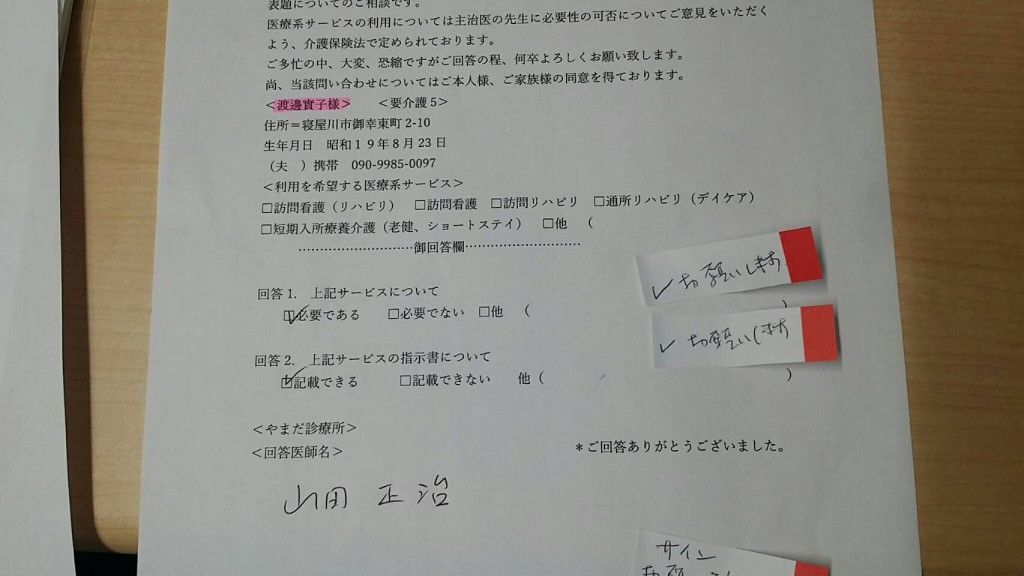 表題についてのご相談です。
医療系サービスの利用については主治医の先生に必要性の可否についてご意見をいただく
よう、介護保険法で定められております。
ご多忙の中、大変、恐縮ですがご回答の程、何卒よろしくお願い致します。
尚、当該問い合わせについてはご本人様、ご家族様の同意を得ております。
＜渡邊實子様＞ ＜要介護5＞
住所＝寝屋川市御幸東町2-10
生年月日 昭和１９年８月２３日
（夫 ）携帯 090-9985-0097
＜利用を希望する医療系サービス＞
□訪問看護（リハビリ） □訪問看護 □訪問リハビリ □通所リハビリ（デイケア）
□短期入所療養介護（老健、ショートステイ） □他 （
………………………御回答欄………………………
✓お願いします
回答1. 上記サービスについて
☑必要である □必要でない □他 （ ）
✓お願いします
回答2. 上記サービスの指示書について
☑記載できる □記載できない 他（ ）
＜やまだ診療所＞
＜回答医師名＞ ＊ご回答ありがとうございました。
山田 正治
サイン
お願い